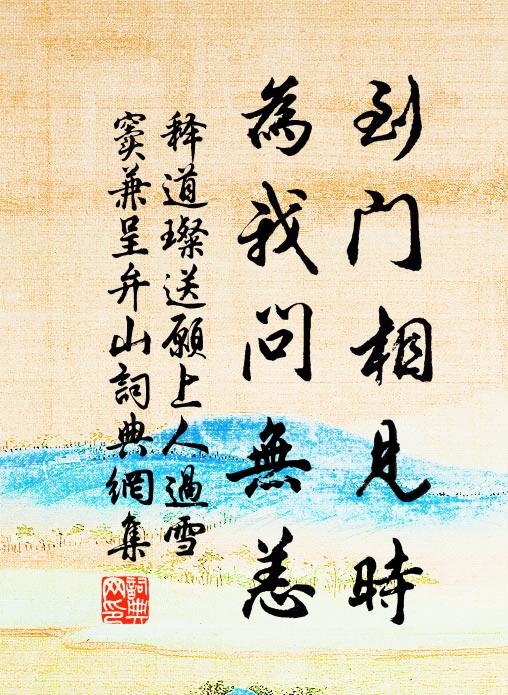 到門相見時
為我問無恙
释道璨送願上人過雪
竇兼呈弁山詞典網集
詞典網印